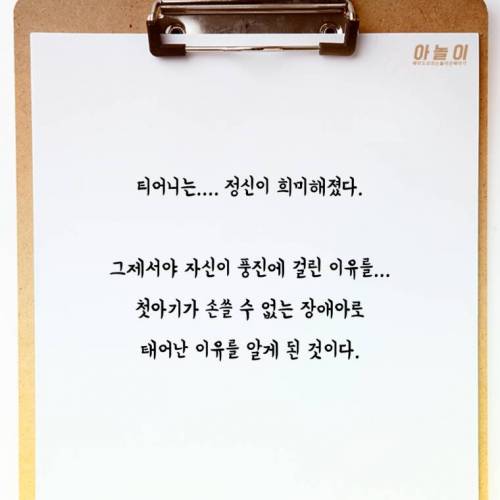 아놀이
티어니는.... 정신이 희미해졌다.
그제서야 자신이 풍진에 걸린 이유를...
첫아기가 손쓸 수 없는 장애아로
태어난 이유를 알게 된 것이다.